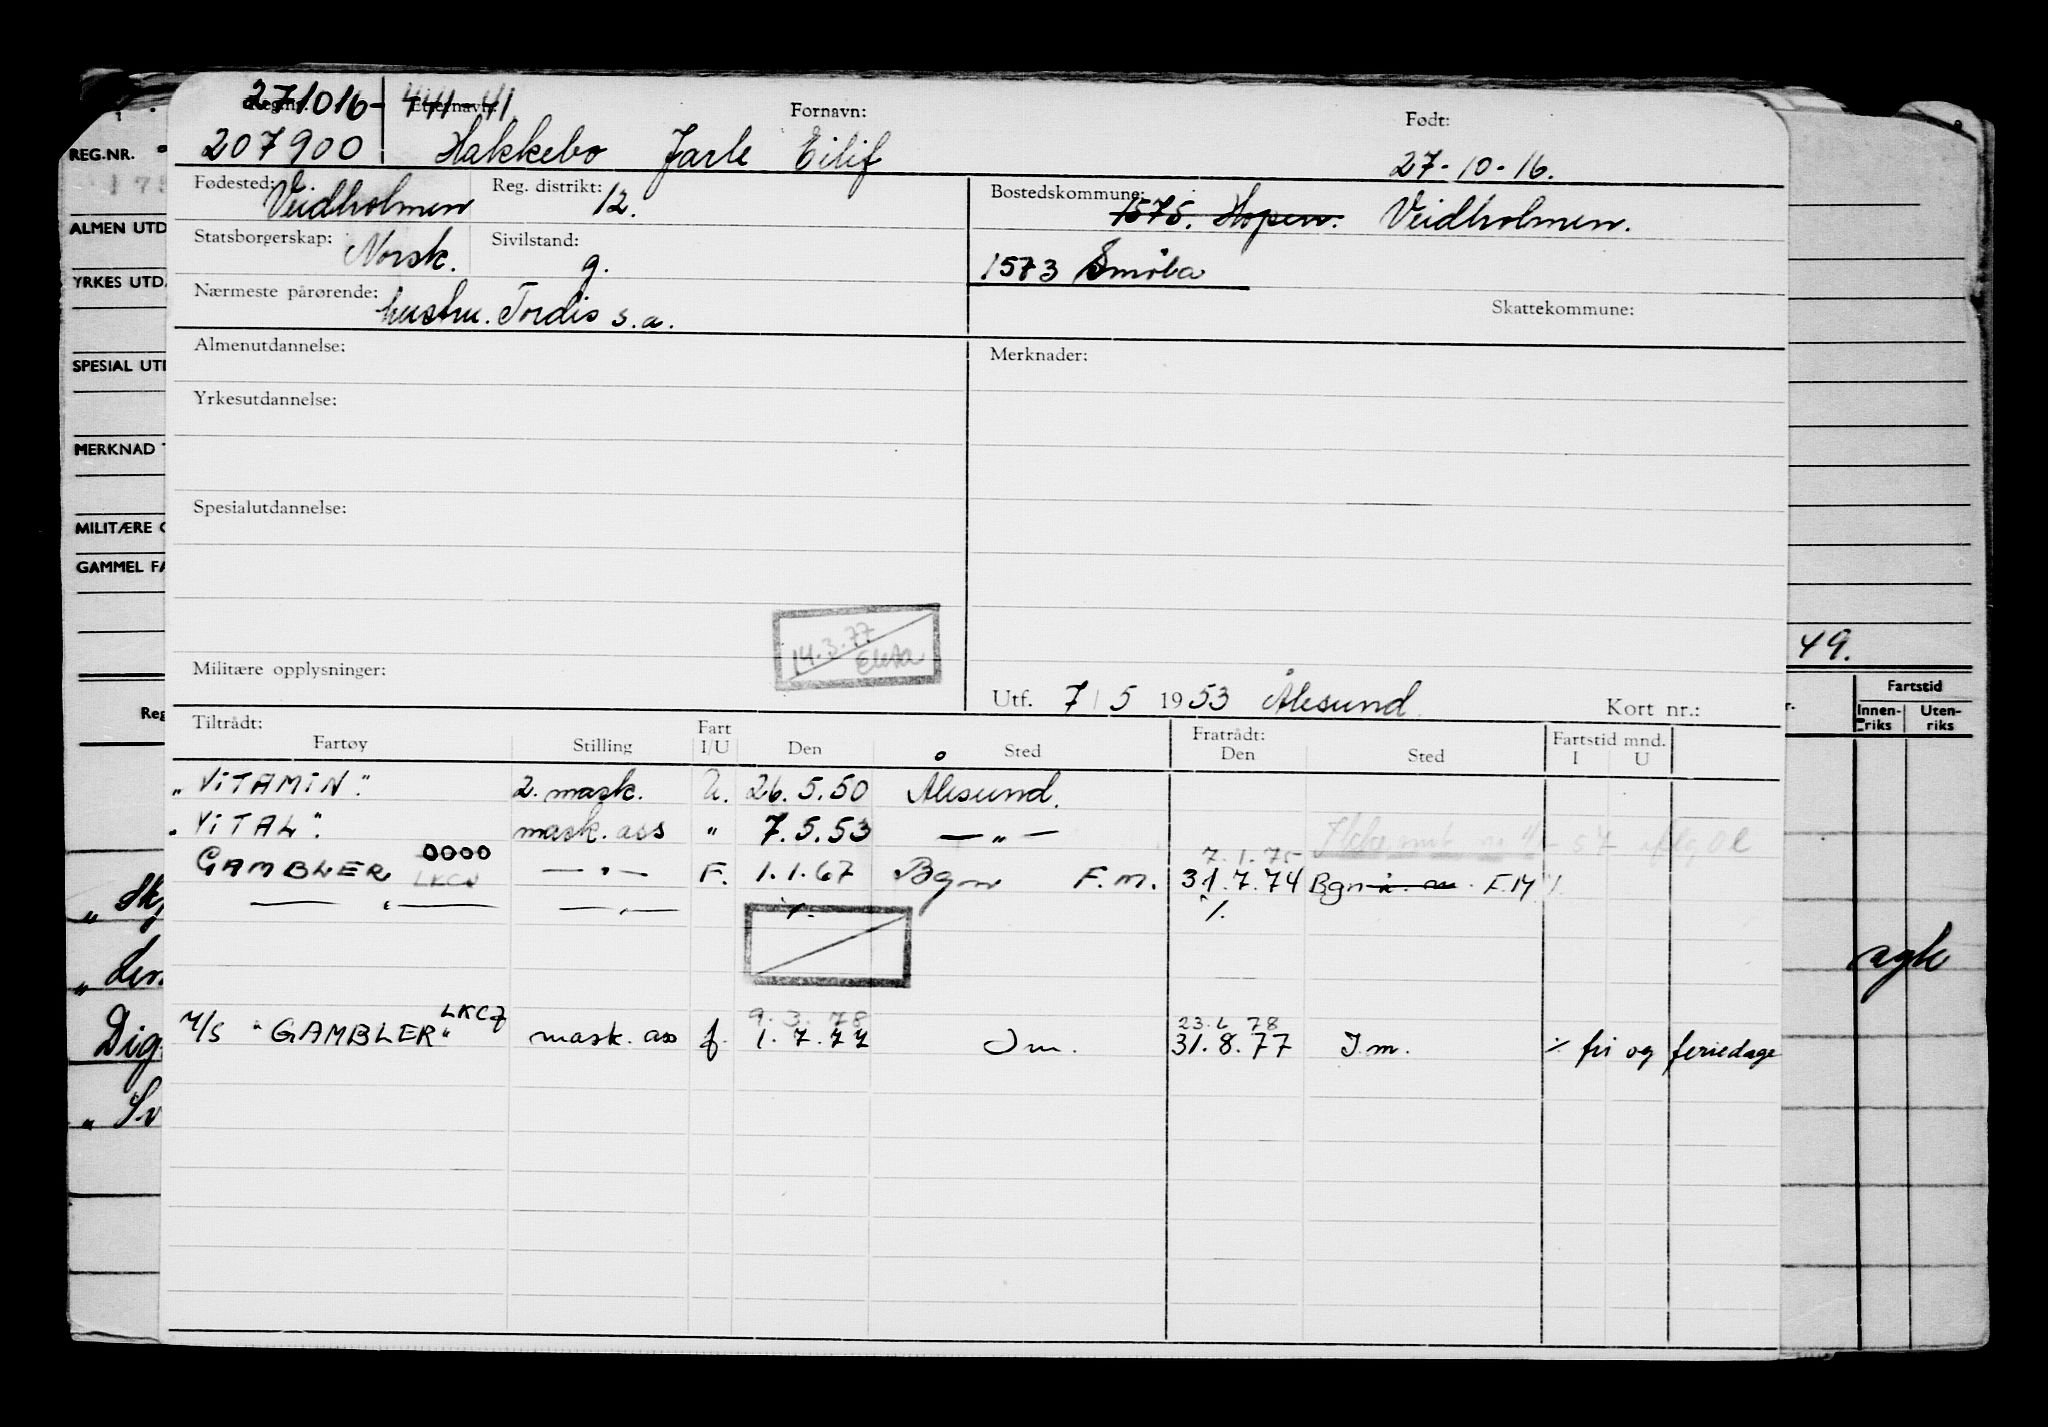 271016- 441-41
Reg.nr. Etternavn: Fornavn: Født:
207900 Hakkebo Jarle Eilif 27-10-16.
Fødested: Veidholmen Reg. distrikt: 12. Bostedskommune: 1575. Hopen. Veidholmen.
Statsborgerskap: Norsk. Sivilstand: g. 1573 Smøla
Nærmeste pårørende: hustru. Tordis s.a. Skattekommune:
Almenutdannelse: Merknader:
Yrkesutdannelse:
Spesialutdannelse:
14.3.77
Militære opplysninger:
Utf. 7/5 1953 Ålesund Kort nr.:
Tiltrådt: Fratrådt:
Fartøy Stilling Fart I/U Den Sted Den Sted Fartstid mnd. I U
"VITAMIN". 2. mask. U. 26.5.50 Ålesund.
"VITAL". mask. ass " 7.5.53 — " —
7.1.75
GAMBLER OOOO — " — F. 1.1.67 Bgn F.m. 31.7.74 Bgn F.M. %.
— " — — " — %. %.
LKCZ 9.3.78 23.6 78
M/S "GAMBLER" mask. ass f. 1.7.77 I m. 31.8.77 I.m. % fri og feriedage
REG.NR.
ALMEN UTD
YRKES UTD
SPESIAL UTD
MERKNAD
MILITÆRE
GAMMEL FA
Reg
Dig
49.
Fartstid
Innen-riks Uten-riks